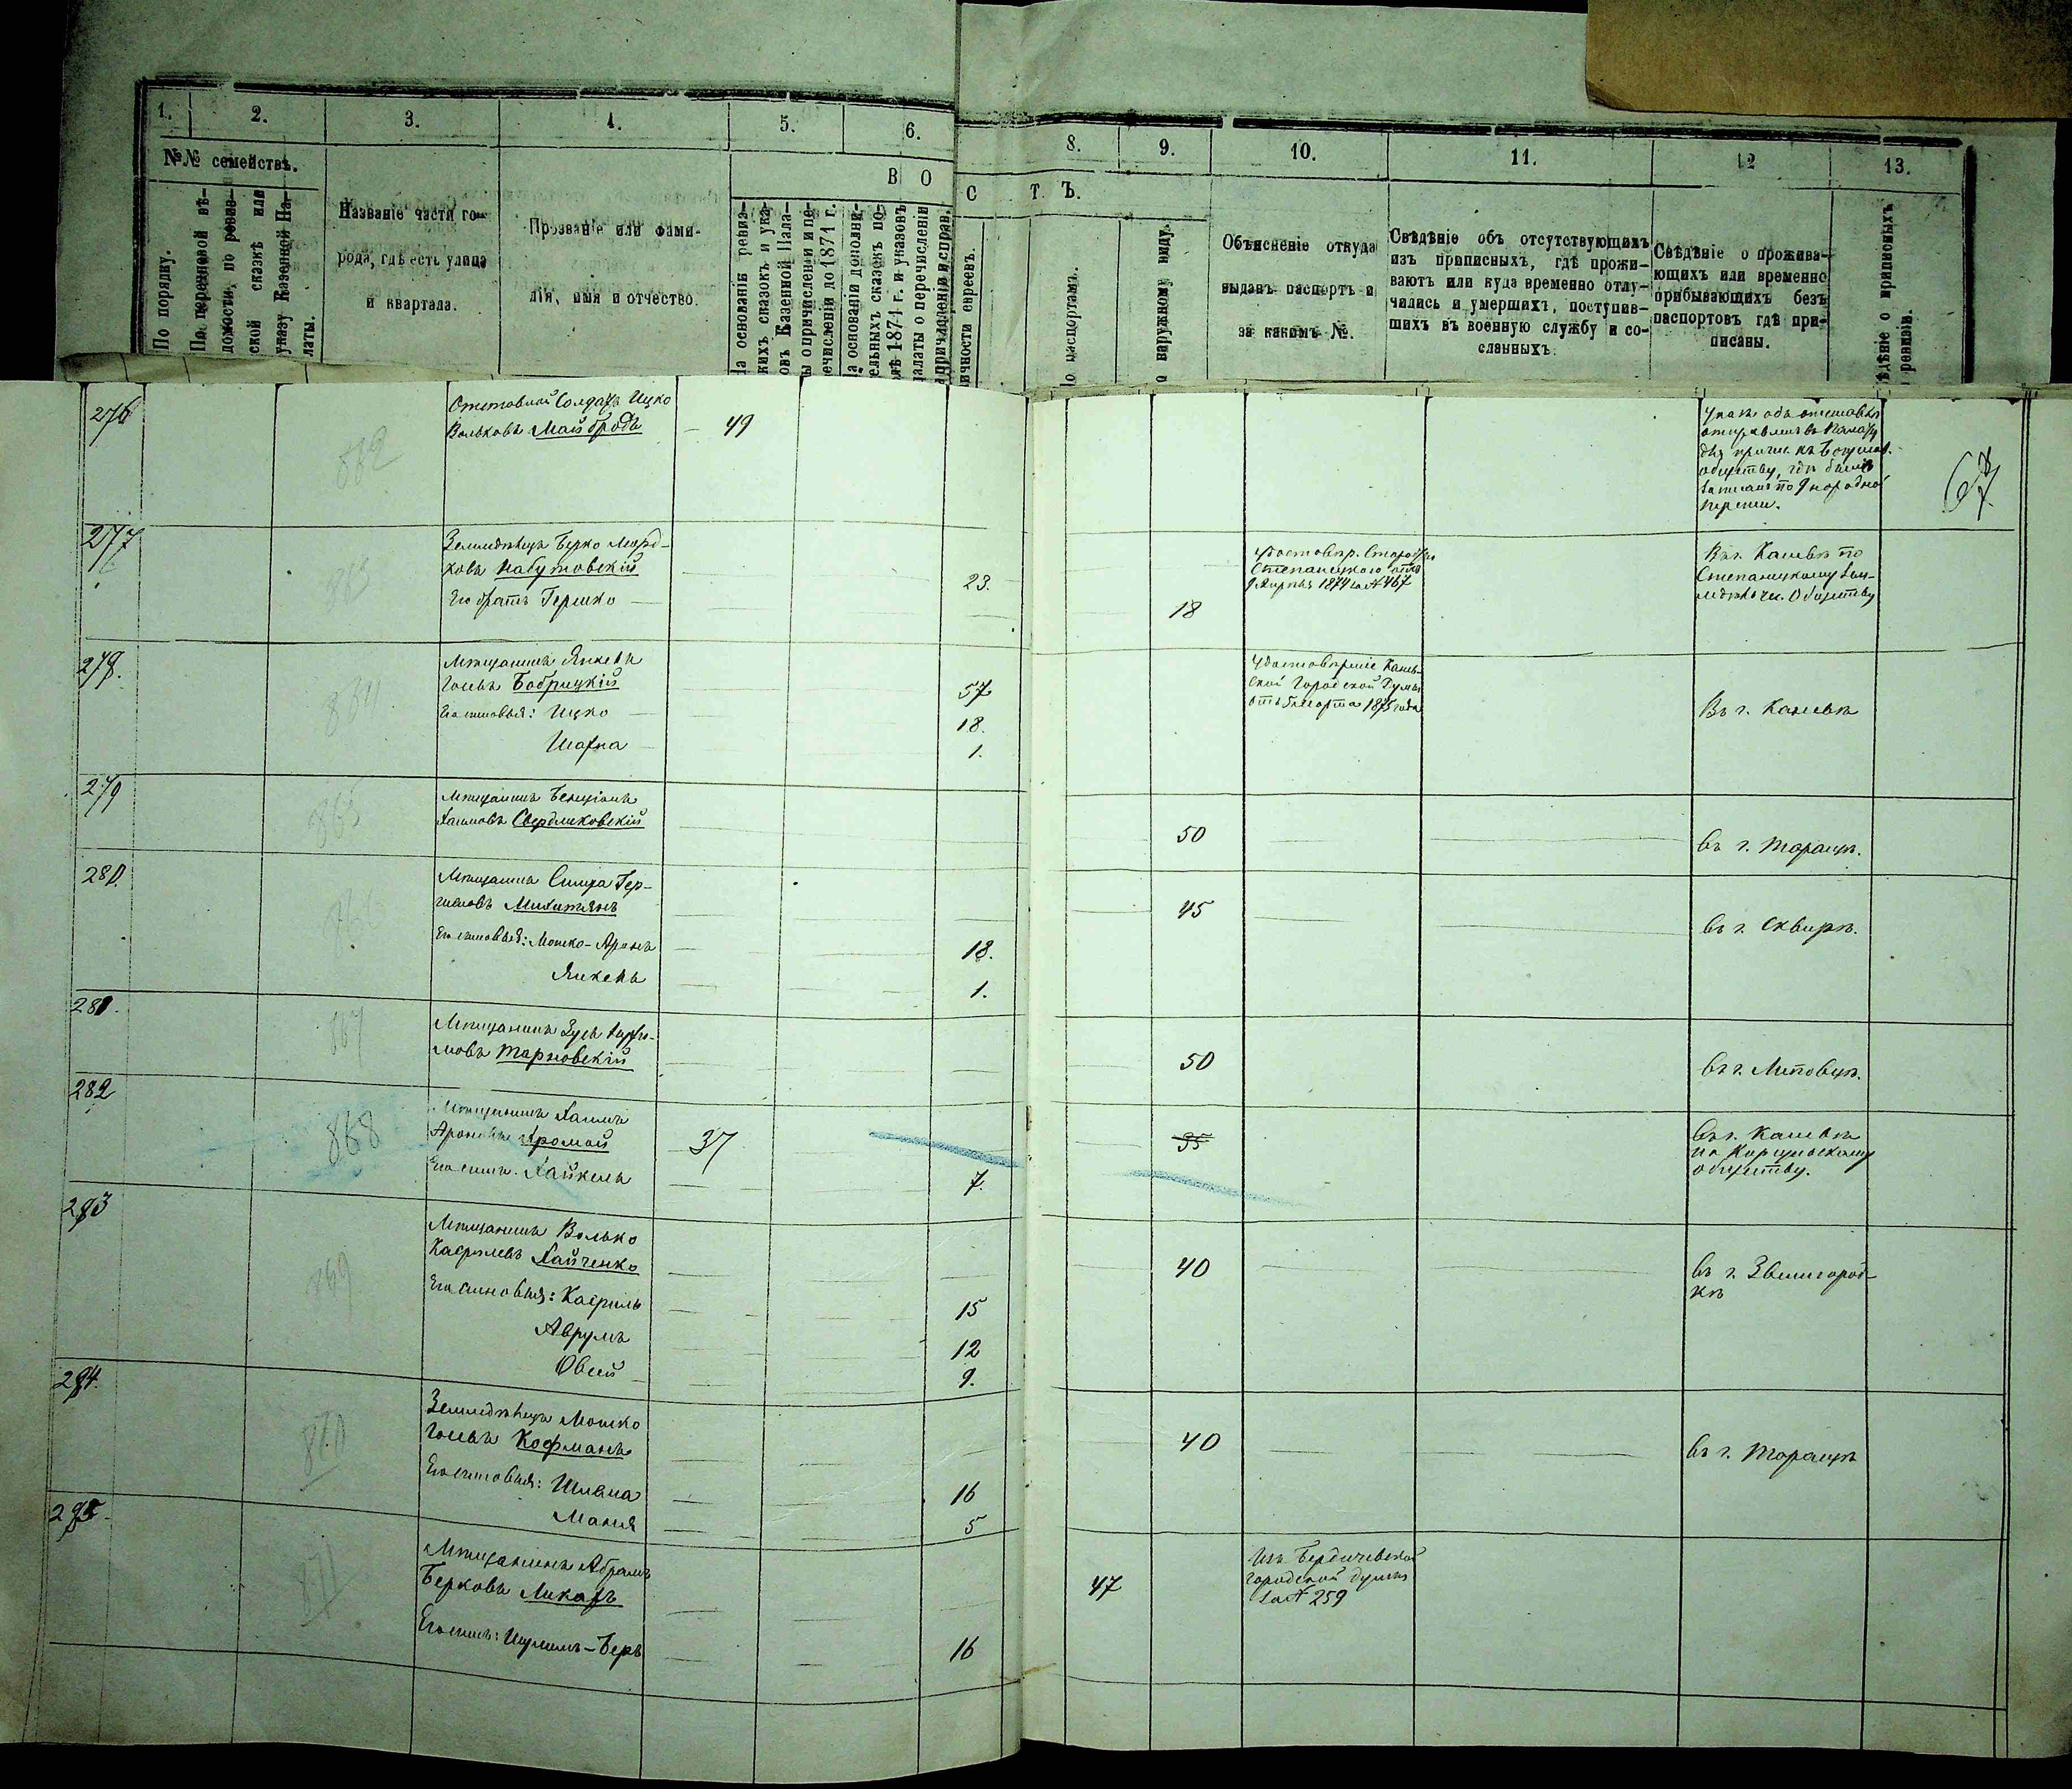 1. 2. 3. 4. 5. 6. 8. 9. 10. 11. 12 13.
№№ семействъ.
В О С Т Ъ.
По порядку.
По перечневой вѣ-
домости, по ревиз-
ской сказкѣ или
указу Казенной Па-
латы.
Названіе части го-
рода, гдѣ есть улица
и квартала.
Прозваніе или фами-
лія, имя и отчество.
На основаніи ревиз-
скихъ сказокъ и ука-
зовъ Казенной Пала-
ты о причисленіи и пе-
речисленіи до 1874 г.
На основаніи дополни-
тельныхъ сказокъ по-
слѣ 1874 г. и указовъ
палаты о перечисленіи
причисленіи и исправ.
личности евреевъ.
По паспортамъ.
По наружному виду.
Объясненіе откуда
выданъ паспортъ и
за какимъ №.
Свѣдѣніе объ отсутствующихъ
изъ приписныхъ, гдѣ прожи-
ваютъ или куда временно отлу-
чились и умершихъ, поступив-
шихъ въ военную службу и со-
сланныхъ.
Свѣдѣніе о прожива-
ющихъ или временно
прибывающихъ безъ
паспортовъ гдѣ при-
писаны.
Свѣдѣніе о приписныхъ
ревизіи.
276
862
Отставной Солдатъ Ицко
Вольковъ Майбродъ
49
Указъ объ отставкѣ
отправленъ въ Палату
для причи. къ Богуслав.
обществу, гдѣ былъ
записанъ по 9 народной
переписи.
67
277
863
Земледѣлецъ Берко Морд-
ковъ Набутовскій
23.
Его братъ Гершко
18
Удостовѣр. Старосты
Степанецкаго отъ
9 Апрѣля 1874 за № 467
Въ г. Каневѣ по
Степанецкому Зем-
ледѣльч. Обществу
278.
864
Мѣщанинъ Янкель
Гоевъ Бобрицкій
57
Его сыновья: Ицко
18.
Шафна
1.
Удостовѣреніе Канев-
ской Городской Думы
отъ 5 Марта 1875 года
Въ г. Каневѣ
279
865
Мѣщанинъ Бенціонъ
Хаимовъ Свердликовскій
50
въ г. Таращѣ.
280.
866
Мѣщанинъ Симха Гер-
шковъ Милитянъ
45
въ г. Сквирѣ.
Его сыновья: Мошко-Аронъ
18.
Янкель
1.
281.
867
Мѣщанинъ Зусь
Тарновскій
50
въ г. Липовцѣ.
282
868
Мѣщанинъ Хаимъ
Ароновъ Хромой
37
35
Его сынъ. Хайкель
7.
Въ г. Каневѣ
по Корсунскому
обществу.
283
869
Мѣщанинъ Волько
Касрилевъ Хайченко
40
въ г. Звенигород-
кѣ
Его сыновья: Касриль
15
Аврумъ
12
Овсей
9.
284.
870
Земледѣлецъ Мошко
Гоевъ Кофманъ
40
въ г. Таращѣ
Его сыновья: Шлема
16
Маня
5
285.
871
Мѣщанинъ Абрамъ
Берковъ Ликахъ
47
Изъ Бердичевской
городской думы
за № 259
Его сынъ: Шулимъ-Беръ
16